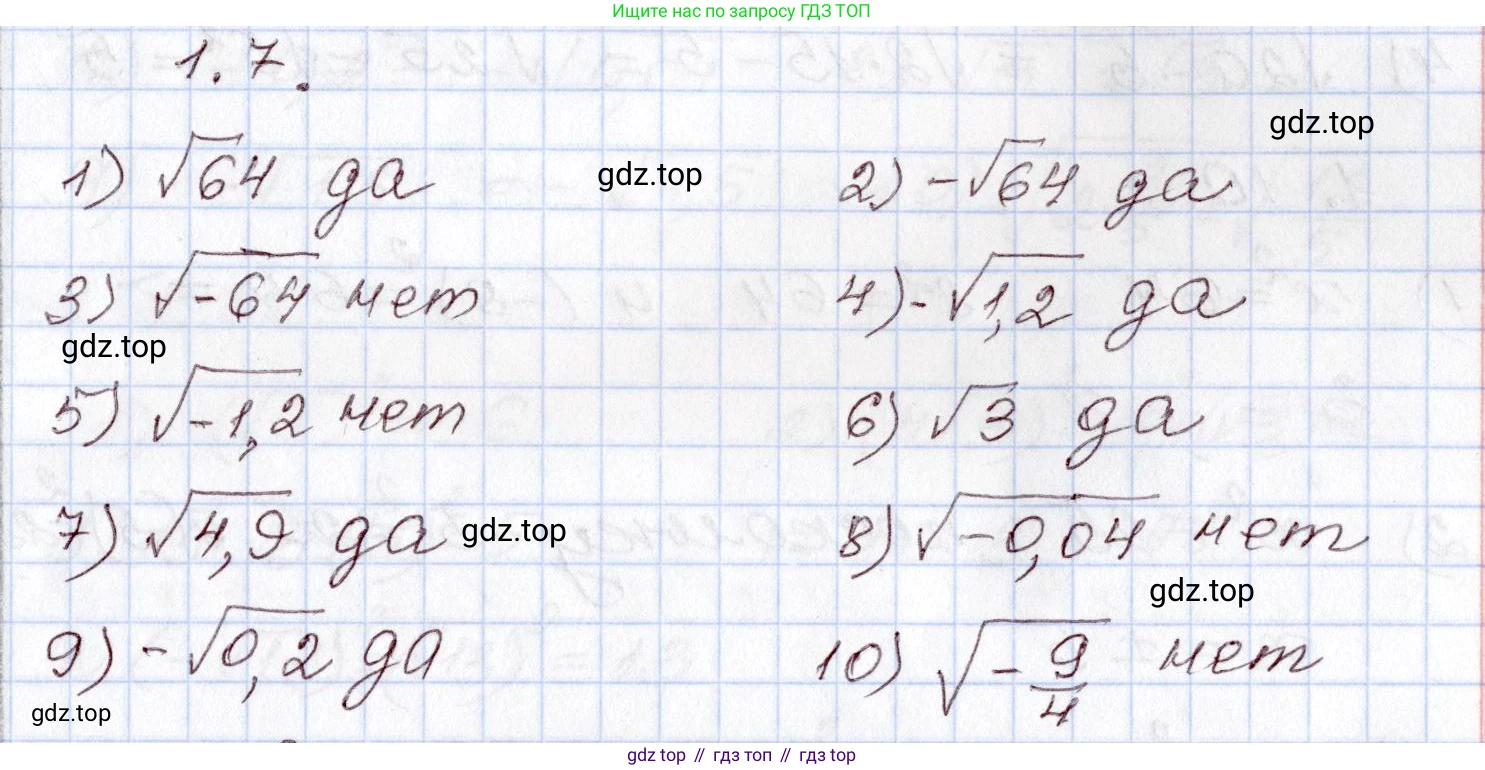 Ищите нас по запросу ГДЗ ТОП
1.7.
gdz.top
1) √64 да gdz.top 2) -√64 да
3) √-64 нет 4) -√1,2 да
gdz.top
5) √-1,2 нет 6) √3 да
7) √4,9 да gdz.top 8) √-0,04 нет
gdz.top
9) -√0,2 да 10) √-9/4 нет
gdz.top
gdz top // гдз топ // gdz top